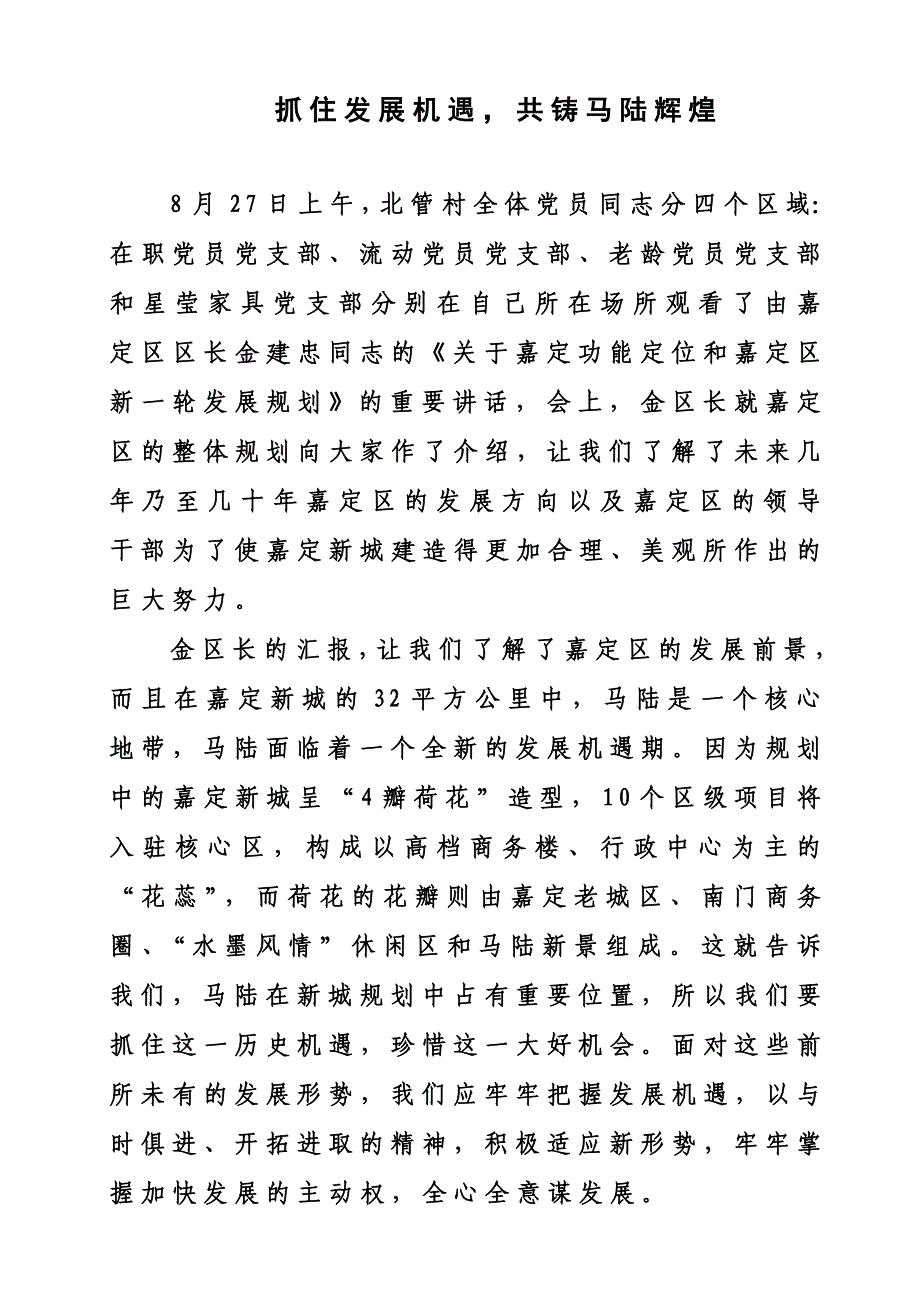 抓住发展机遇，共铸马陆辉煌
8月27日上午，北管村全体党员同志分四个区域：
在职党员党支部、流动党员党支部、老龄党员党支部
和星莹家具党支部分别在自己所在场所观看了由嘉
定区区长金建忠同志的《关于嘉定功能定位和嘉定区
新一轮发展规划》的重要讲话，会上，金区长就嘉定
区的整体规划向大家作了介绍，让我们了解了未来几
年乃至几十年嘉定区的发展方向以及嘉定区的领导
干部为了使嘉定新城建造得更加合理、美观所作出的
巨大努力。
金区长的汇报，让我们了解了嘉定区的发展前景，
而且在嘉定新城的32平方公里中，马陆是一个核心
地带，马陆面临着一个全新的发展机遇期。因为规划
中的嘉定新城呈“4瓣荷花”造型，10个区级项目将
入驻核心区，构成以高档商务楼、行政中心为主的
“花蕊”，而荷花的花瓣则由嘉定老城区、南门商务
圈、“水墨风情”休闲区和马陆新景组成。这就告诉
我们，马陆在新城规划中占有重要位置，所以我们要
抓住这一历史机遇，珍惜这一大好机会。面对这些前
所未有的发展形势，我们应牢牢把握发展机遇，以与
时俱进、开拓进取的精神，积极适应新形势，牢牢掌
握加快发展的主动权，全心全意谋发展。